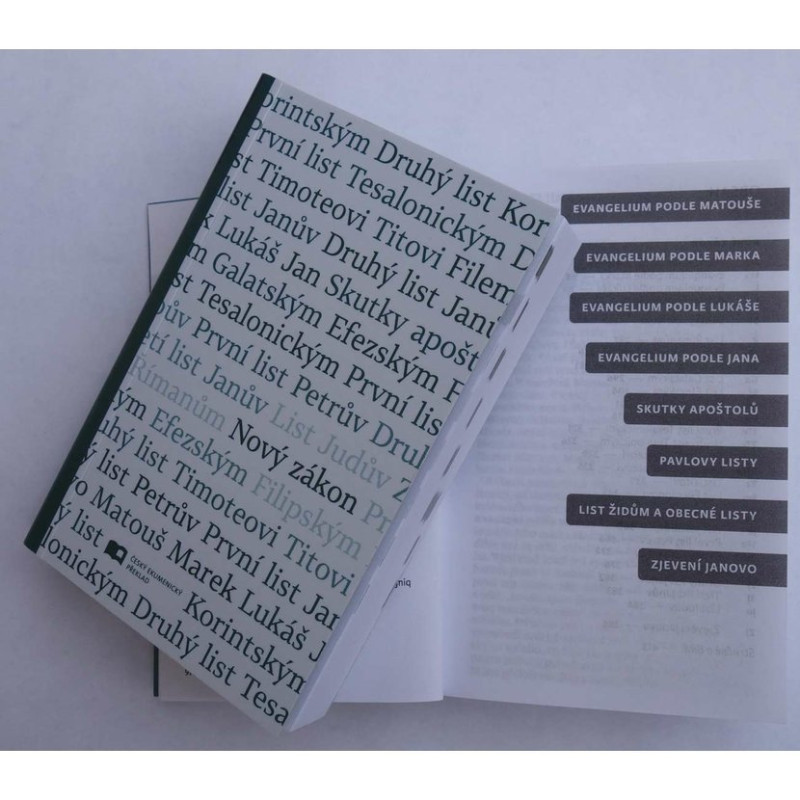 orintským Druhý list Kor
První list Tesalonickým D
st Timoteovi Titovi Filem
list Janův Druhý list Janů
k Lukáš Jan Skutky apošt
m Galatským Efezským F
st Tesalonickým První lis
ův První list Petrův Druh
etí list Janův List Judův Z
Římanům Nový zákon
ým Efezským Filipským Pr
uhý list Timoteovi Titovi
ý list Petrův První list Jan
vo Matouš Marek Lukáš J
ý list Korintským
lonickým Druhý list Tesa
ČESKÝ EKUMENICKÝ
PŘEKLAD
EVANGELIUM PODLE MATOUŠE
EVANGELIUM PODLE MARKA
EVANGELIUM PODLE LUKÁŠE
EVANGELIUM PODLE JANA
SKUTKY APOŠTOLŮ
PAVLOVY LISTY
LIST ŽIDŮM A OBECNÉ LISTY
ZJEVENÍ JANOVO